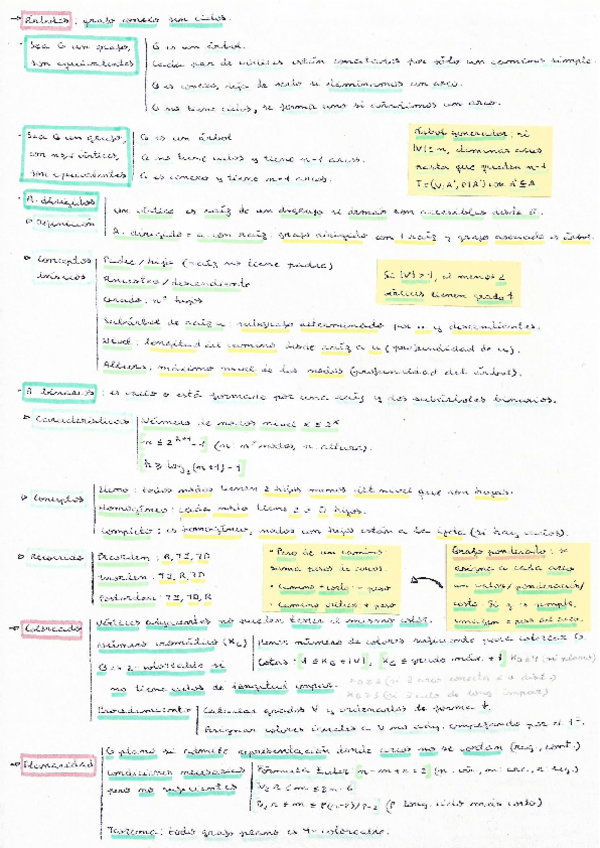 → Árboles: grafo conexo sin ciclos.
· Sea G un grafo, son equivalentes
G es un árbol.
Cada par de vértices están conectados por sólo un camino simple.
G es conexo, deja de serlo si eliminamos un arco.
G no tiene ciclos, se forma uno si añadimos un arco.
· Sea G un grafo, con n≥1 vértices, son equivalentes
G es un árbol
G no tiene ciclos y tiene n-1 arcos.
G es conexo y tiene n-1 arcos.
Árbol generador: si
|V| = n, eliminar arcos
hasta que queden n-1
· A. dirigidos
▷ Definición
Un vértice es raíz de un digrafo si demás son accesibles desde él.
A. dirigido = a. con raíz: grafo dirigido con 1 raíz y grafo asociado es árbol.
▷ Conceptos básicos
Padre / hijo (raíz no tiene padre)
Ancestro / descendiente
Grado: nº hijos
Subárbol de raíz u: subgrafo determinado por u y descendientes.
Nivel: longitud del camino desde raíz a u (profundidad de u).
Altura: máximo nivel de los nodos (profundidad del árbol).
Si |V| > 1, al menos 2
vértices tienen grado 1
· A. binarios: es vacío o está formado por una raíz y dos subárboles binarios.
▷ Características
Número de nodos nivel k ≤ 2^k
n ≤ 2^(h+1) - 1 (n: nº nodos, h: altura).
h ≥ log₂(n+1) - 1
▷ Conceptos
Lleno: todos nodos tienen 2 hijos menos último nivel que son hojas.
Homogéneo: cada nodo tiene 2 o 0 hijos.
Completo: es homogéneo, nodos con hijos están a la izda (si hay varios).
▷ Recorridos
Preorden: R, TI, TD
Inorden: TI, R, TD
Postorden: TI, TD, R
· Peso de un camino
suma pesos de arcos.
· Camino + corto → peso
· Camino crítico + peso
Grafo ponderado: se
asigna a cada arco
un valor / ponderación /
→ Coloreado
Vértices adyacentes no pueden tener el mismo color.
Número cromático (X_G)
Menor número de colores suficiente para colorear G.
G es 2-coloreable si no tiene ciclos de longitud impar.
Procedimiento
Calcular grados V y ordenarlos de forma ↓.
→ Planaridad
G plano si admite representación donde arcos no se cortan (reg., cont.)
Condiciones necesarias pero no suficientes
Fórmula Euler
Teorema: todo grafo plano es 4-coloreable.